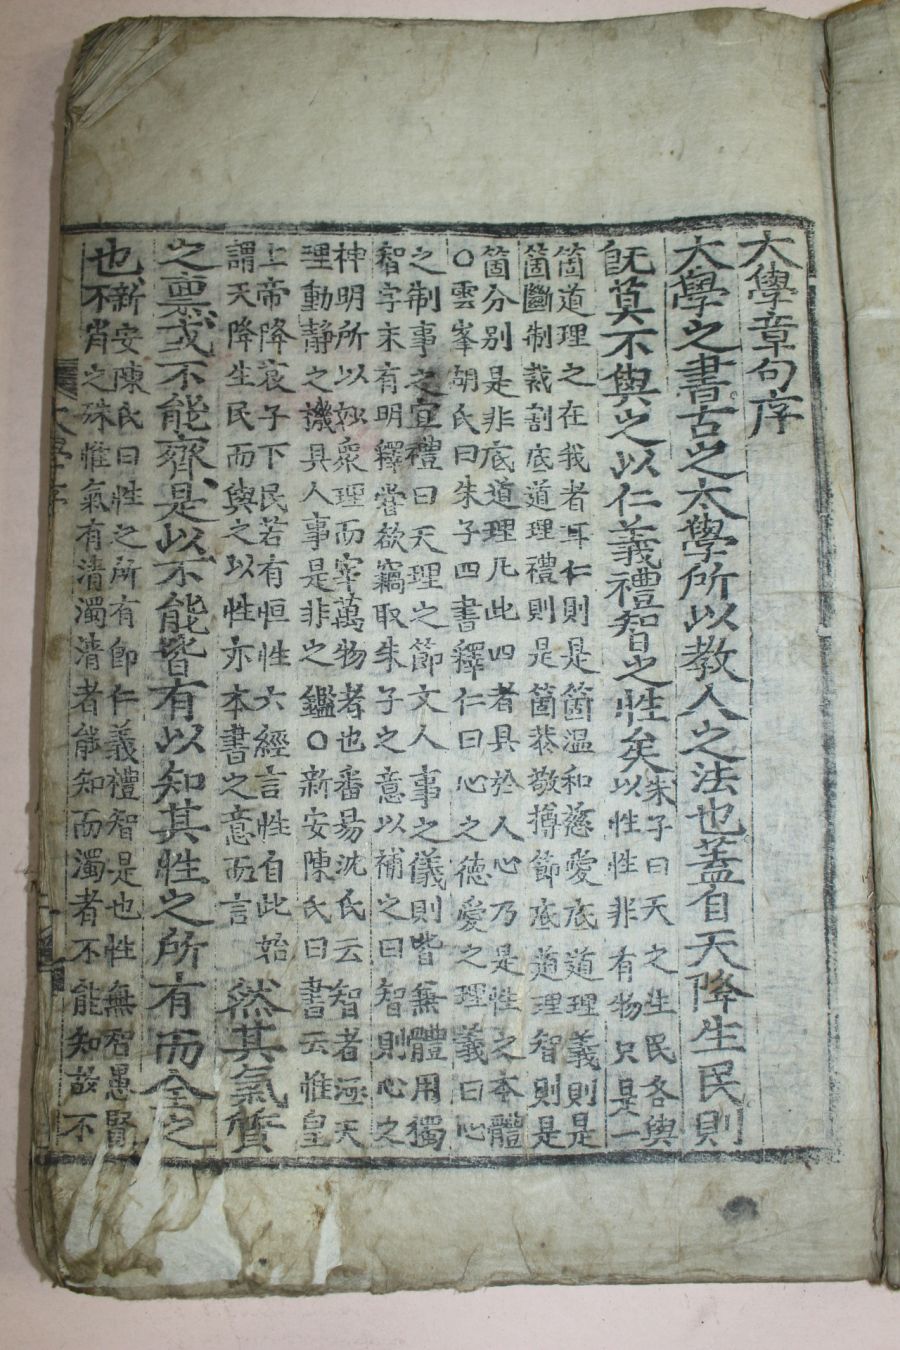 大學章句序
大學之書古之大學所以敎人之法也蓋自天降生民則
旣莫不與之以仁義禮智之性矣
朱子曰天之生民各與
以性性非有物只是一
箇道理之在我者耳仁則是箇溫和慈愛底道理義則是
箇斷制裁割底道理禮則是箇恭敬撙節底道理智則是
箇分别是非底道理凡此四者具於人心乃是性之本體
○雲峯胡氏曰朱子四書釋仁曰心之德愛之理義曰心
之制事之宜禮曰天理之節文人事之儀則皆兼體用獨
智字未有明釋嘗欲竊取朱子之意以補之曰智則心之
神明所以妙衆理而宰萬物者也番昜沈氏云智者涵天
理動靜之機具人事是非之鑑○新安陳氏曰書云惟皇
上帝降衷于下民若有恒性六經言性自此始
謂天降生民而與之以性亦本書之意而言
然其氣質
之禀或不能齊是以不能皆有以知其性之所有而全之
也
新安陳氏曰性之所有卽仁義禮智是也性無智愚賢
不肖之殊惟氣有清濁清者能知而濁者不能知故不
大學序